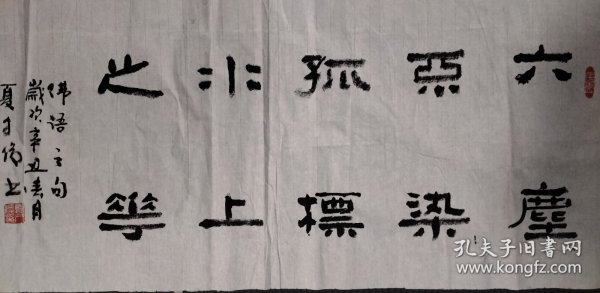 六塵
亞染
孤標
水上
之華
語之句
歲次辛丑春月
夏
孔夫子旧书网
www.kongfz.com